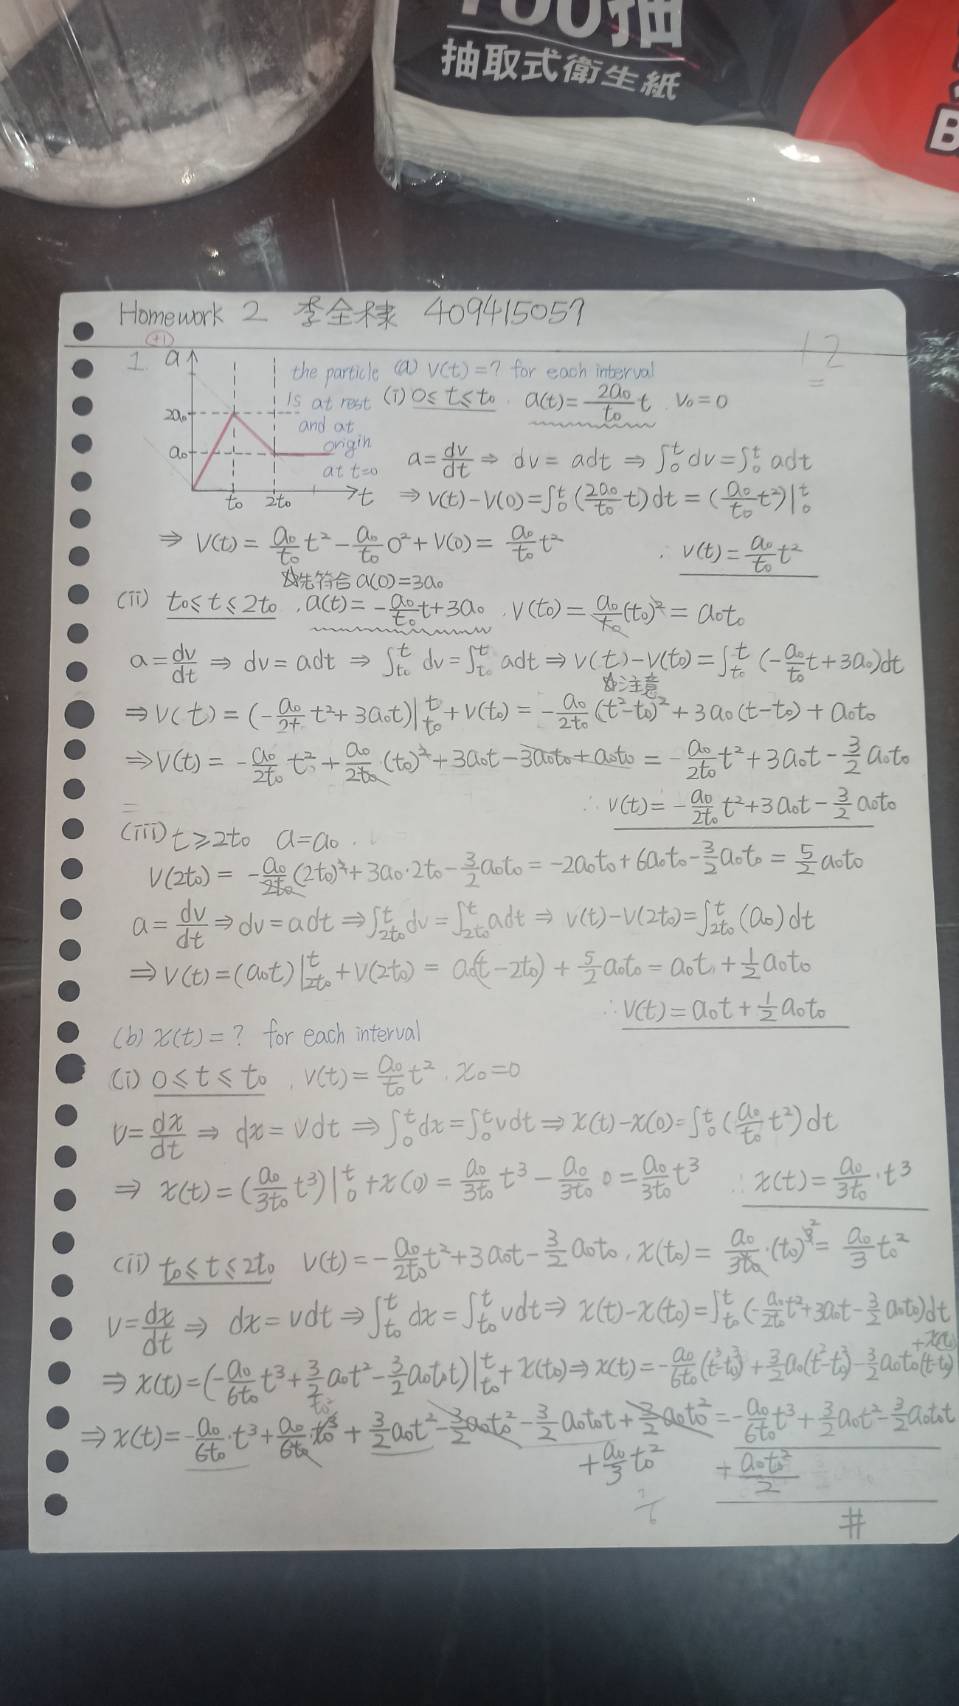 100抽
抽取式衛生紙
B
Homework 2 李全棣 409415057
12
(+1)
1. a
2a₀
a₀
t₀ 2t₀ t
the particle
is at rest
and at
origin
at t=0
(a) v(t)=? for each interval
(i) 0≤t≤t₀. a(t)=2a₀/t₀ t  v₀=0
a=dv/dt ⇒ dv=adt ⇒ ∫₀ᵗdv=∫₀ᵗ adt
⇒ v(t)-v(0)=∫₀ᵗ(2a₀/t₀ t)dt=(a₀/t₀ t²)|₀ᵗ
⇒ v(t)=a₀/t₀ t²-a₀/t₀ 0²+v(0)=a₀/t₀ t² ∴ v(t)=a₀/t₀ t²
☆先符合a(0)=3a₀
(ii) t₀≤t≤2t₀. a(t)=-a₀/t₀ t+3a₀. v(t₀)=a₀/t₀(t₀)²=a₀t₀
a=dv/dt ⇒ dv=adt ⇒ ∫ₜ₀ᵗ dv=∫ₜ₀ᵗ adt ⇒ v(t)-v(t₀)=∫ₜ₀ᵗ(-a₀/t₀ t+3a₀)dt
☆注意
⇒ v(t)=(-a₀/2t t²+3a₀t)|ₜ₀ᵗ+v(t₀)=-a₀/2t₀(t²-t₀)²+3a₀(t-t₀)+a₀t₀
⇒ v(t)=-a₀/2t₀ t²+a₀/2t₀(t₀)²+3a₀t-3a₀t₀+a₀t₀=-a₀/2t₀ t²+3a₀t-3/2 a₀t₀
∴ v(t)=-a₀/2t₀ t²+3a₀t-3/2 a₀t₀
(iii) t≥2t₀ a=a₀.
v(2t₀)=-a₀/2t₀(2t₀)²+3a₀·2t₀-3/2 a₀t₀=-2a₀t₀+6a₀t₀-3/2 a₀t₀=5/2 a₀t₀
a=dv/dt ⇒ dv=adt ⇒ ∫₂ₜ₀ᵗ dv=∫₂ₜ₀ᵗ adt ⇒ v(t)-v(2t₀)=∫₂ₜ₀ᵗ(a₀)dt
⇒ v(t)=(a₀t)|₂ₜ₀ᵗ+v(2t₀)=a₀(t-2t₀)+5/2 a₀t₀=a₀t+1/2 a₀t₀
∴ v(t)=a₀t+1/2 a₀t₀
(b) x(t)=? for each interval
(i) 0≤t≤t₀. v(t)=a₀/t₀ t². x₀=0
v=dx/dt ⇒ dx=vdt ⇒ ∫₀ᵗdx=∫₀ᵗvdt ⇒ x(t)-x(0)=∫₀ᵗ(a₀/t₀ t²)dt
⇒ x(t)=(a₀/3t₀ t³)|₀ᵗ+x(0)=a₀/3t₀ t³-a₀/3t₀ 0=a₀/3t₀ t³ ∴ x(t)=a₀/3t₀·t³
(ii) t₀≤t≤2t₀ v(t)=-a₀/2t₀ t²+3a₀t-3/2 a₀t₀. x(t₀)=a₀/3t₀·(t₀)³=a₀/3 t₀²
v=dx/dt ⇒ dx=vdt ⇒ ∫ₜ₀ᵗ dx=∫ₜ₀ᵗ vdt ⇒ x(t)-x(t₀)=∫ₜ₀ᵗ(-a₀/2t₀ t²+3a₀t-3/2 a₀t₀)dt
⇒ x(t)=(-a₀/6t₀ t³+3/2 a₀t²-3/2 a₀t₀t)|ₜ₀ᵗ+x(t₀) ⇒ x(t)=-a₀/6t₀(t³-t₀³)+3/2 a₀(t²-t₀²)-3/2 a₀t₀(t-t₀)+x(t₀)
⇒ x(t)=-a₀/6t₀·t³+a₀/6t₀ t₀³+3/2 a₀t²-3/2 a₀t₀²-3/2 a₀t₀t+3/2 a₀t₀²=-a₀/6t₀ t³+3/2 a₀t²-3/2 a₀t₀t
+a₀/3 t₀² +a₀t₀²/2
#